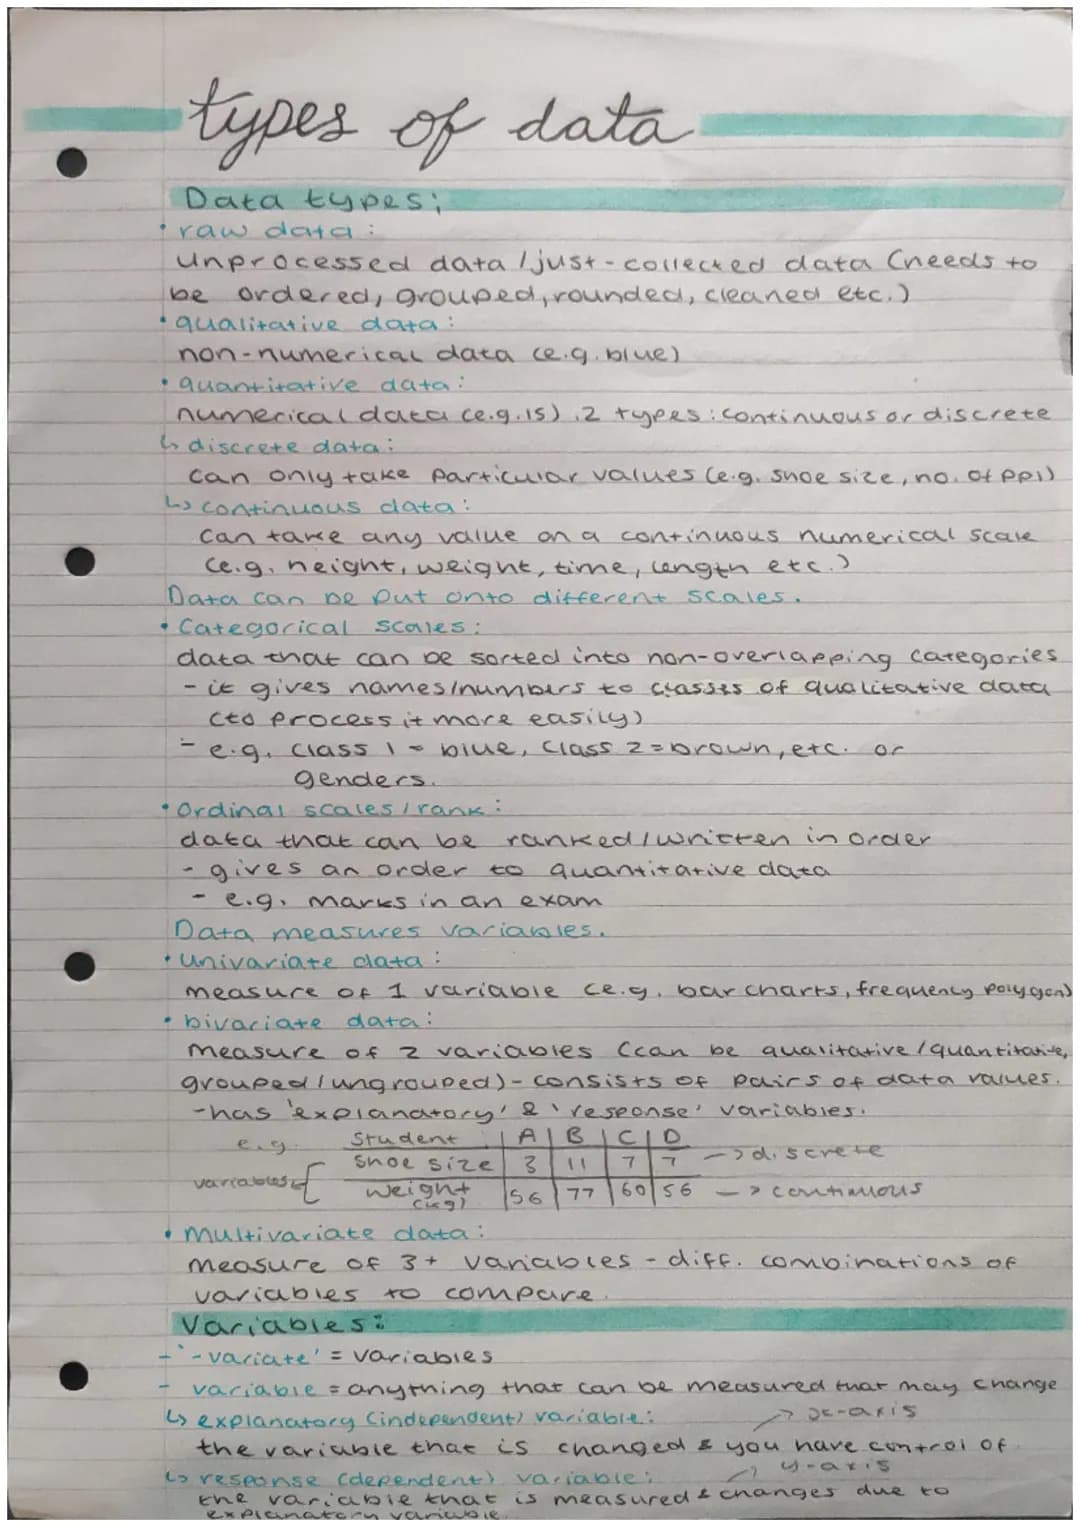 types of data
Data types;
• raw data:
unprocessed data / just-collected data (needs to
be ordered, grouped, rounded, cleaned etc.)
• qualitative data:
non-numerical data (e.g. blue)
• quantitative data:
numerical data (e.g. 15). 2 types: continuous or discrete
↳ discrete data:
can only take particular values (e.g. shoe size, no. of ppl)
↳ continuous data:
can take any value on a continuous numerical scale
(e.g. height, weight, time, length etc.)
Data can be put onto different scales.
• Categorical scales:
data that can be sorted into non-overlapping categories
- it gives names/numbers to classes of qualitative data
(to process it more easily)
- e.g. class 1 = blue, class 2 = brown, etc. or
genders.
• Ordinal scales / rank:
data that can be ranked/written in order
- gives an order to quantitative data
- e.g. marks in an exam
Data measures variables.
• univariate data:
measure of 1 variable (e.g. bar charts, frequency polygon)
• bivariate data:
measure of 2 variables (can be qualitative/quantitative,
grouped/ungrouped) - consists of pairs of data values.
- has 'explanatory' & 'response' variables.
e.g. Student | A | B | C | D
shoe size | 3 | 11 | 7 | 7 → discrete
variables
weight (kg) | 56 | 77 | 60 | 56 → continuous
• multivariate data:
measure of 3+ variables - diff. combinations of
variables to compare.
Variables:
- '-variate' = variables
- variable = anything that can be measured that may change
↳ explanatory (independent) variable: → x-axis
the variable that is changed & you have control of
↳ response (dependent) variable: → y-axis
the variable that is measured & changes due to
explanatory variable